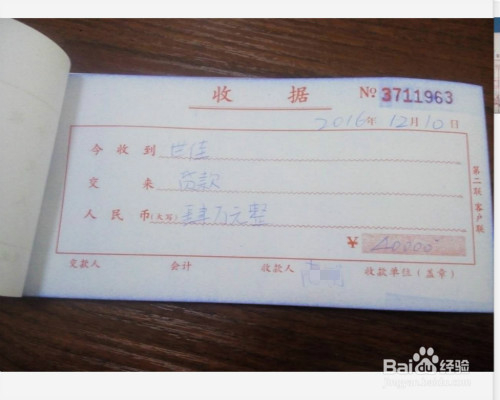 收据 № 3711963
2016年12月10日
今收到 世佳
交来 货款
人民币(大写) 肆万元整
¥ 40000
第二联 客户联
交款人 会计 收款人 收款单位(盖章)
Baidu经验
jingyan.baidu.com